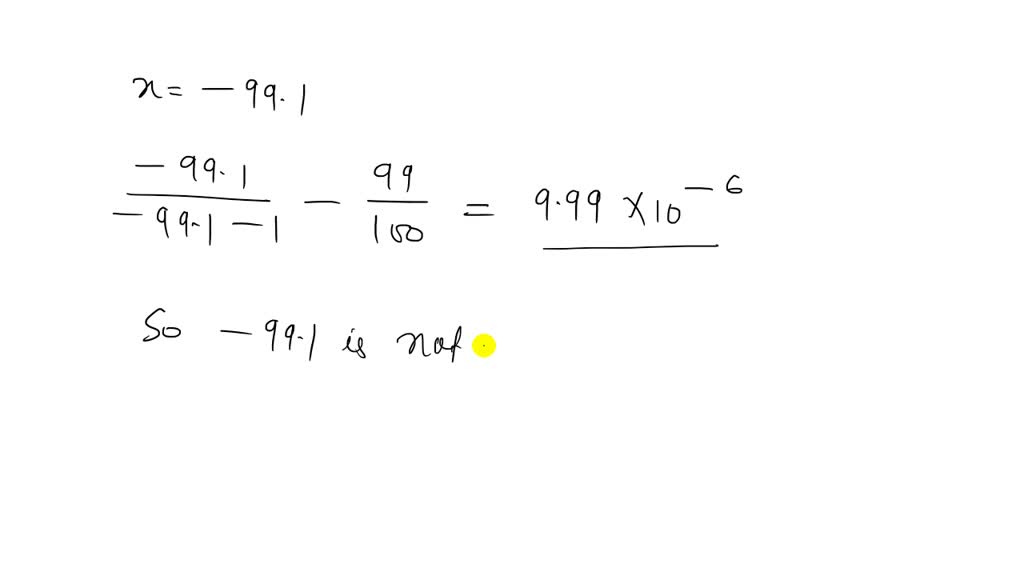 x = - 99.1
- 99.1 / - 99.1 - 1 - 99 / 100 = 9.99 × 10^-6
So - 99.1 is not